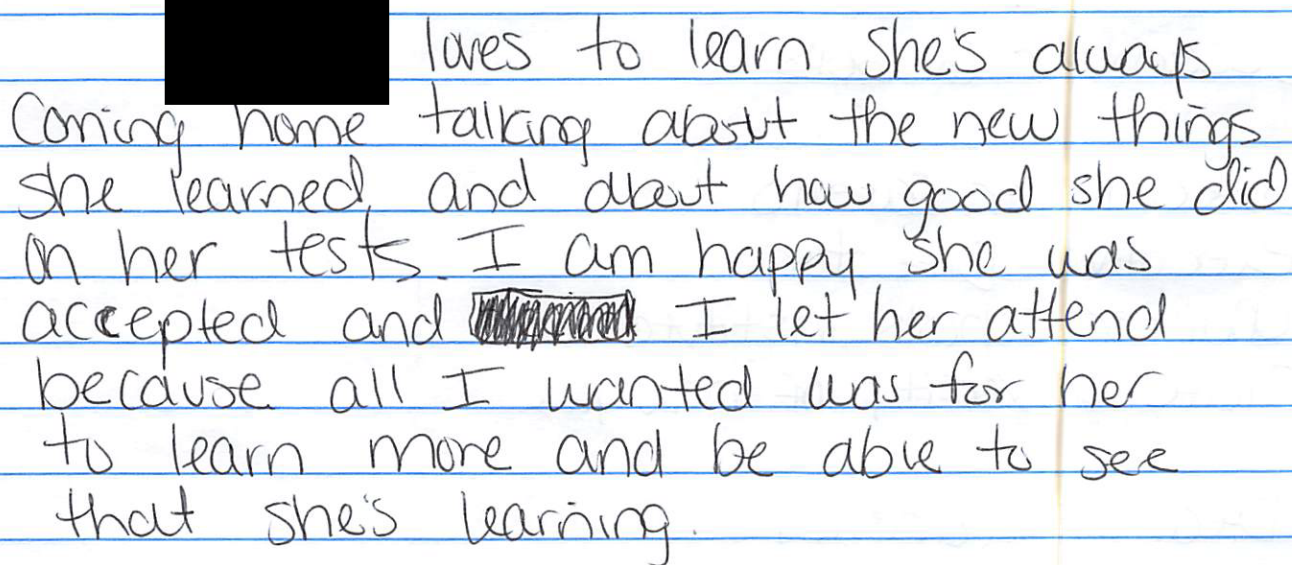 loves to learn she's always
Coming home talking about the new things
she learned, and about how good she did
on her tests. I am happy she was
accepted and I let her attend
because all I wanted was for her
to learn more and be able to see
that she's learning.